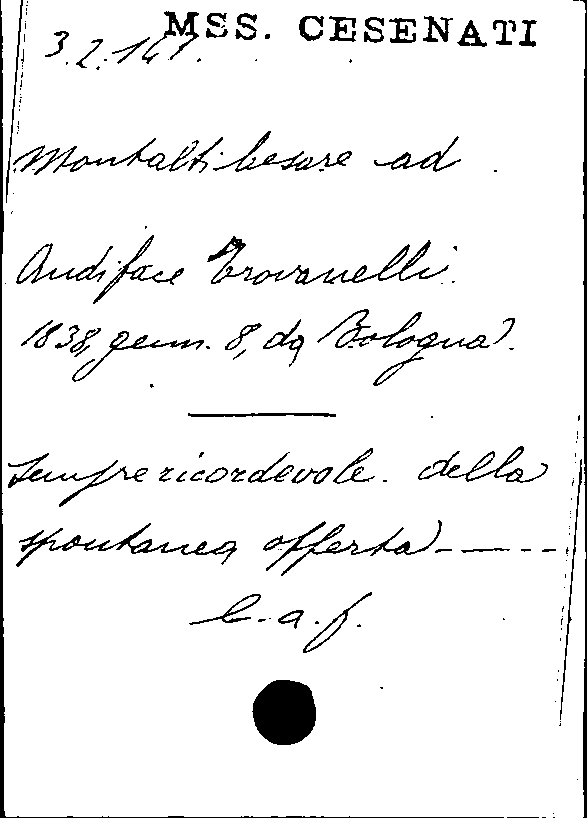 MSS. CESENATI
3.2.141.
Montalti Cesare ad
Audiface Trovanelli.
1838, genn. 8, da Bologna.
Sempre ricordevole della
spontanea offerta-----
C.a.f.